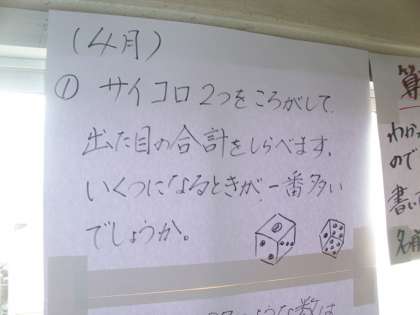 (4月)
① サイコロ2つをころがして、
出た目の合計をしらべます。
いくつになるときが一番多い
でしょうか。
算
わか
ので
書い
名前